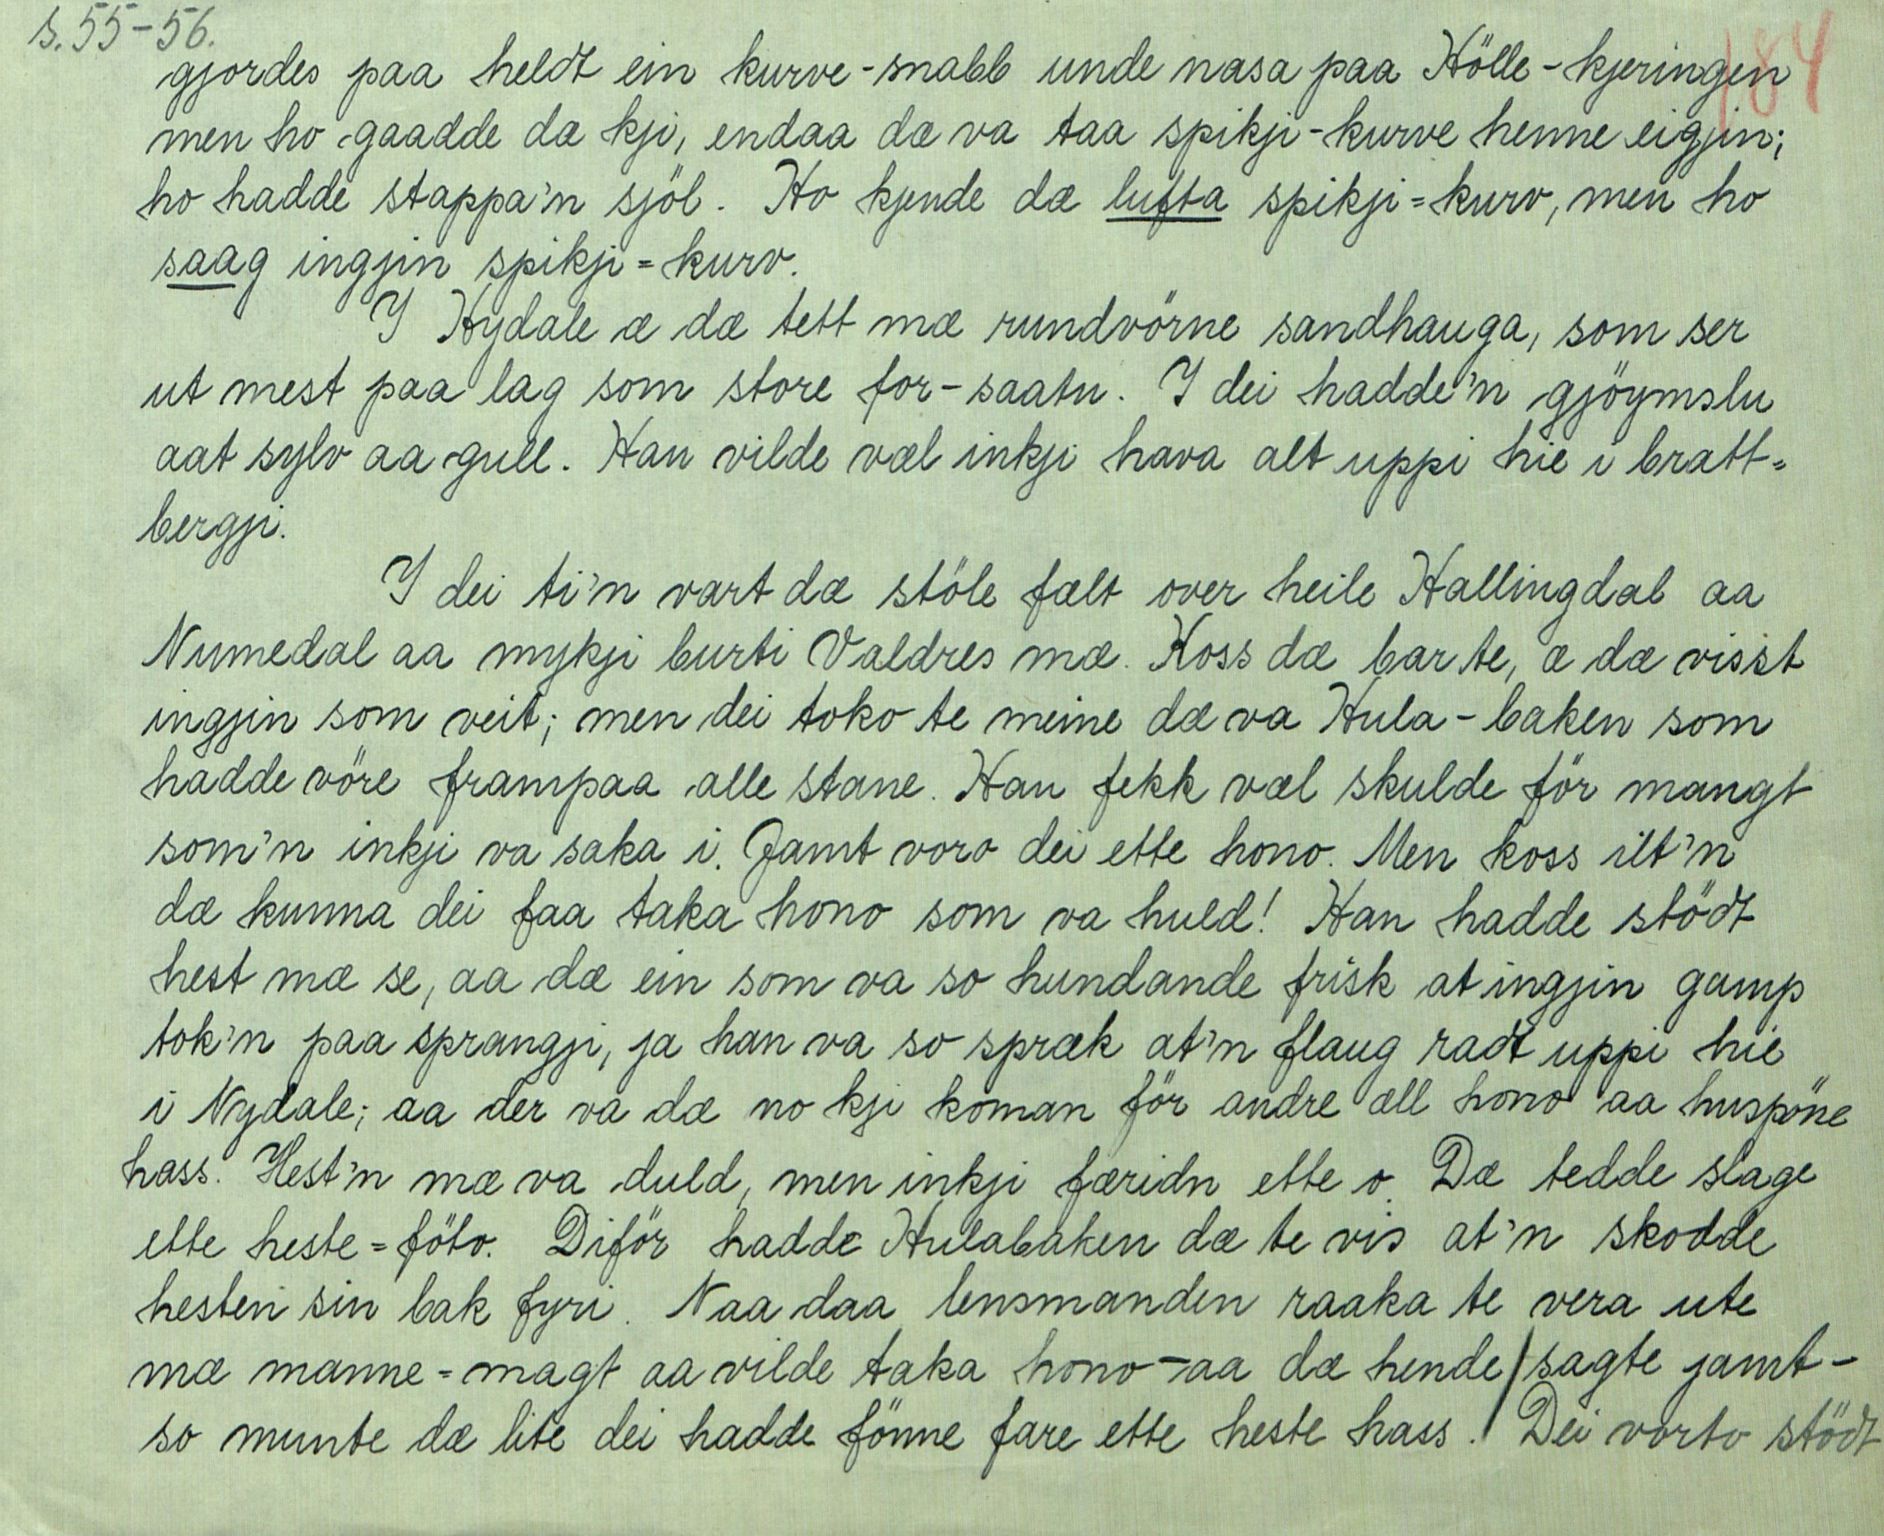 s. 55-56.
184
gjordes paa heldt ein kurve-snabb unde nasa paa Hölle-kjeringen
men ho gaadde dæ kji, endaa dæ va taa spikji-kurve henne eigjin;
ho hadde stappa'n sjöl. Ho kjende dæ lufta spikji=kurv, men ho
saag ingjin spikji=kurv.
I Nydale æ dæ tett mæ rundvörne sandhauga, som ser
ut mest paa lag som store for-saatu. I dei hadde'n gjöymslu
aat sylv aa gull. Han vilde væl inkji hava alt uppi hie i bratt=
bergji.
I dei ti'n vart dæ stöle fælt over heile Hallingdal aa
Numedal aa mykji burti Valdres mæ. Koss dæ bar te, æ dæ visst
ingjin som veit; men dei toko te meine dæ va Hula-baken som
hadde vöre frampaa alle stane. Han fekk væl skulde för mangt
som'n inkji va saka i. Jamt voro dei ette hono. Men koss ilt'n
dæ kunna dei faa taka hono som va huld! Han hadde stödt
hest mæ se, aa dæ ein som va so hundande frisk at ingjin gamp
tok'n paa sprangji, ja han va so spræk at'n flaug radt uppi hie
i Nydale; aa der va dæ no kji koman för andre æll hono aa huspöne
hass. Hest'n mæ va duld, men inkji færidn ette o. Dæ tedde slage
ette heste=föto. Diför hadde Hulabaken dæ te vis at'n skodde
hesten sin bak fyri. Naa daa lensmanden raaka te vera ute
mæ manne=magt aa vilde taka hono - aa dæ hende/sagte jamt -
so munte dæ lite dei hadde fönne fare ette heste hass./ Dei vorto stödt